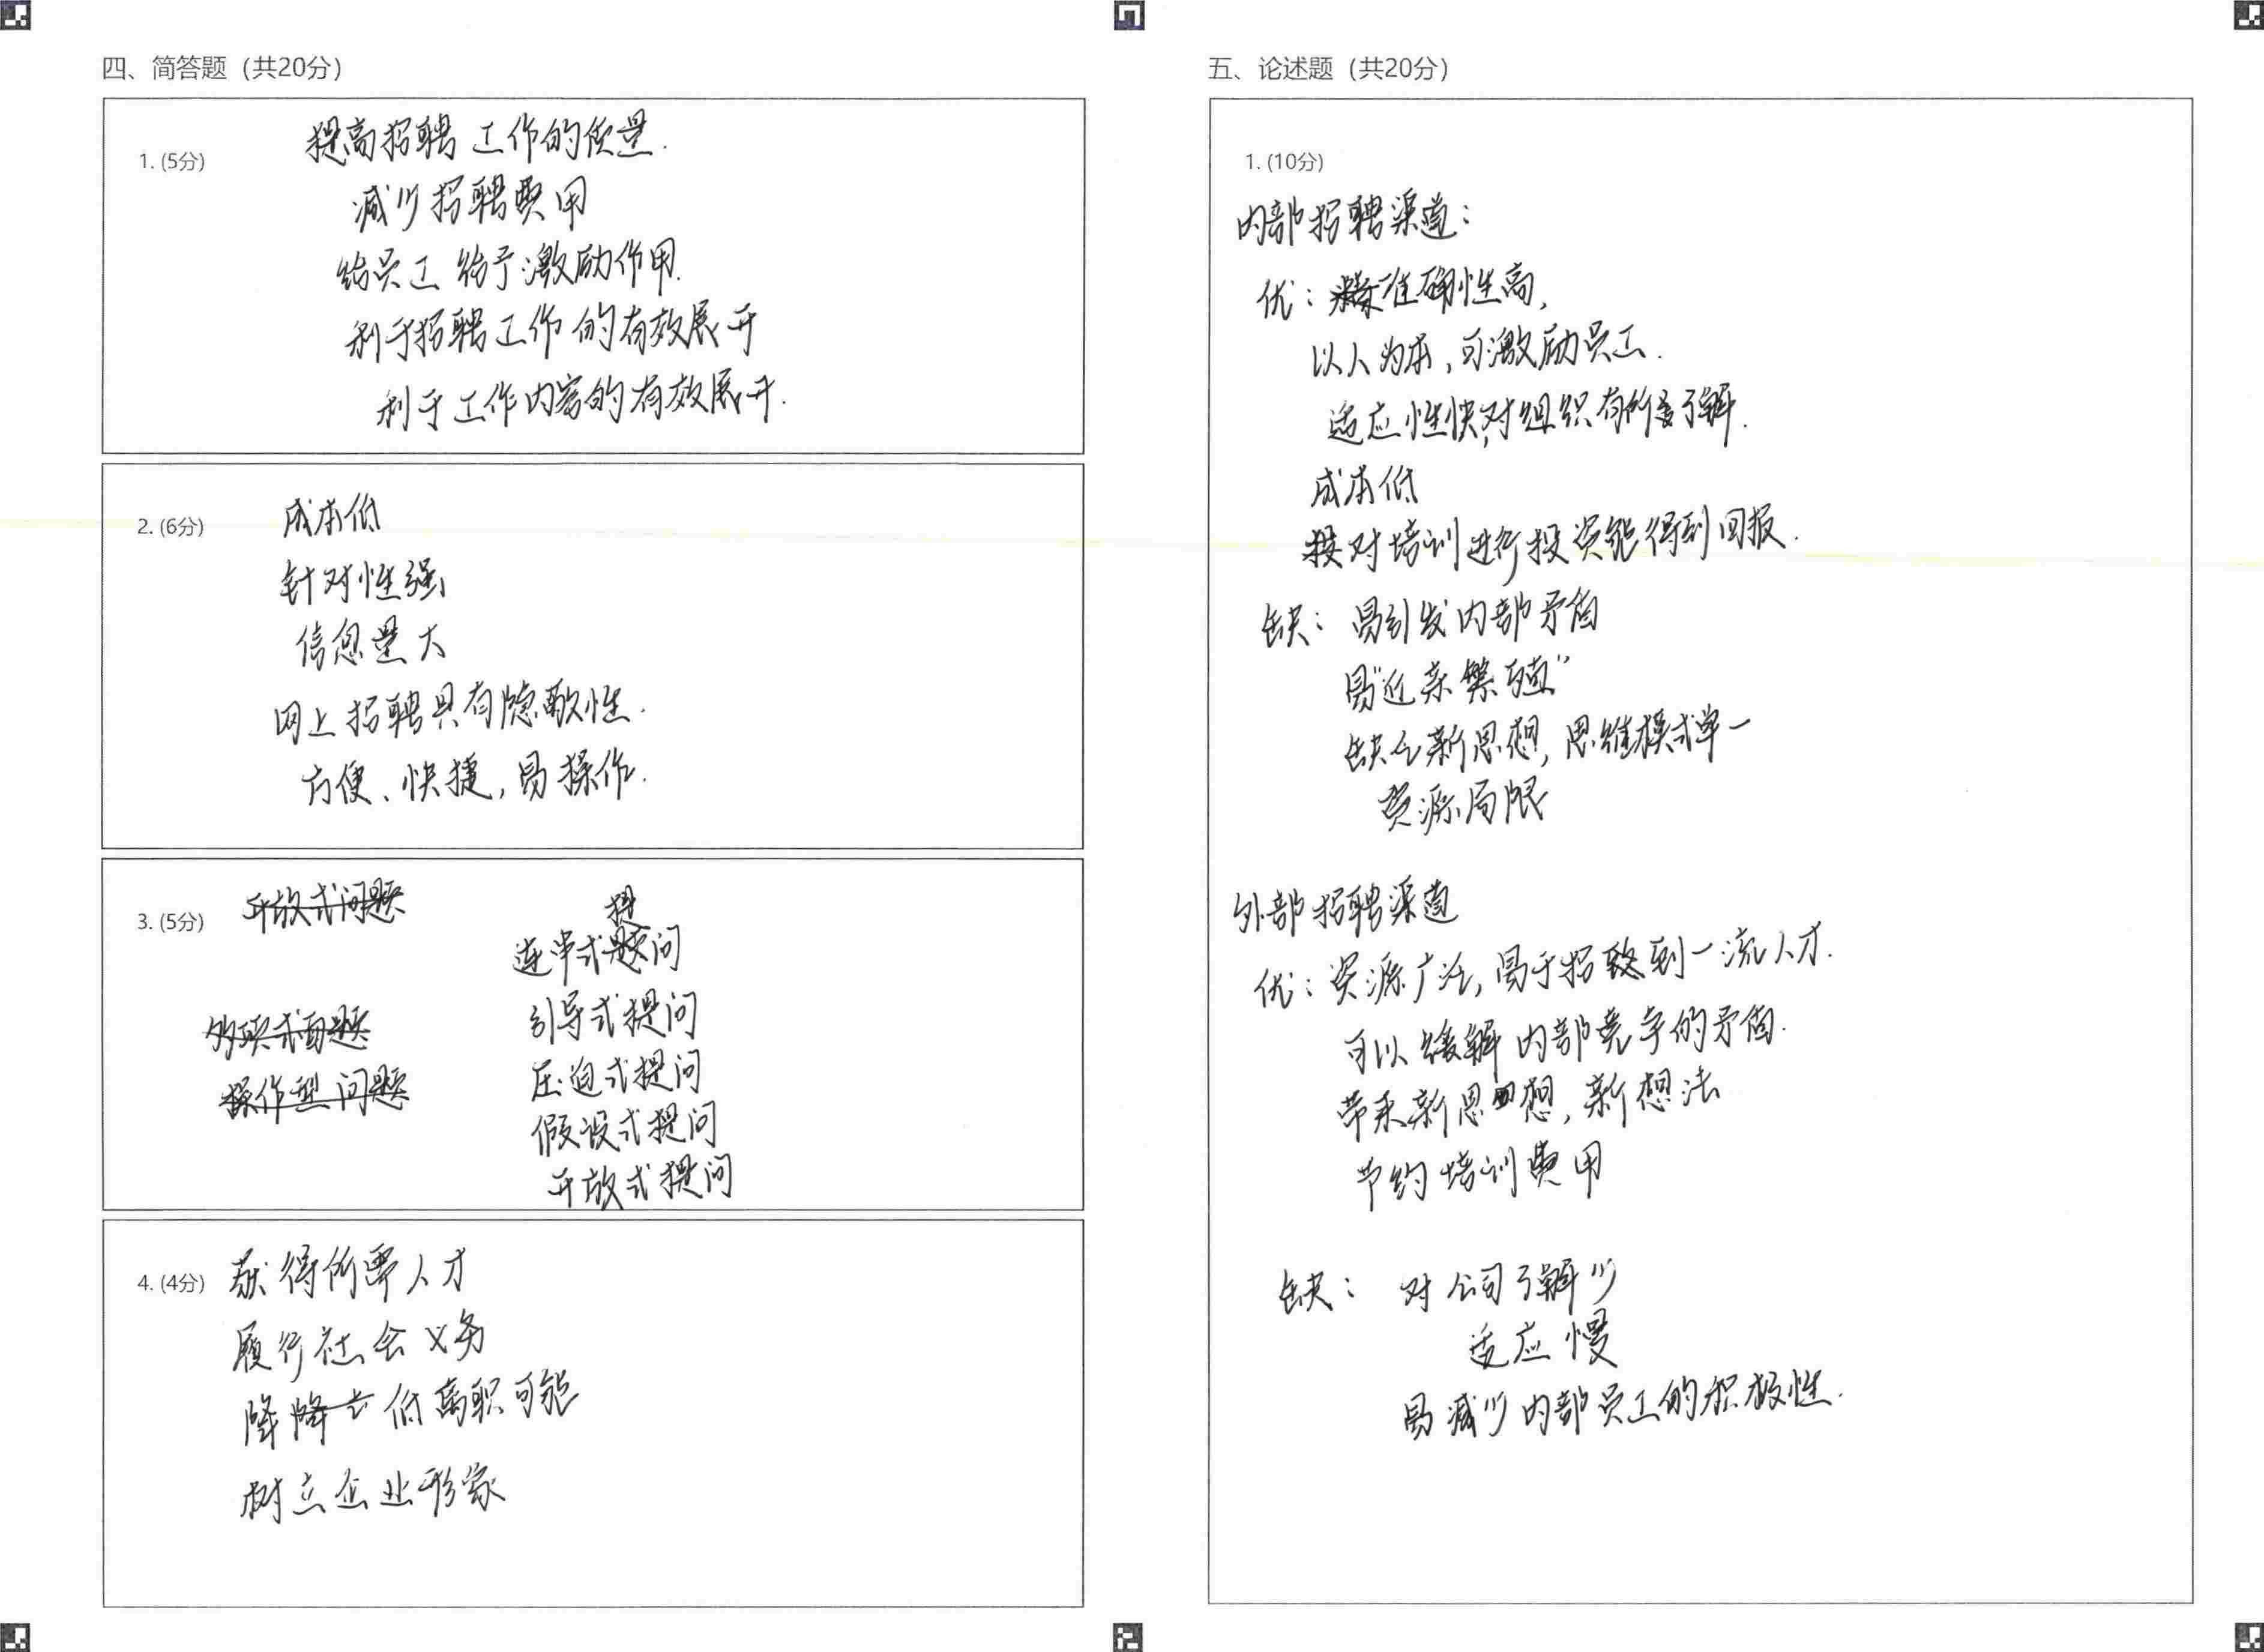 四、简答题（共20分）
1. (5分)
提高招聘工作的质量.
减少招聘费用
给员工给予激励作用.
利于招聘工作的有效展开
利于工作内容的有效展开.
2. (6分)
成本低
针对性强
信息量大
网上招聘具有隐蔽性.
方便、快捷，易操作.
3. (5分)
开放式问题
提
连串式题问
引导式提问
多项式问题
压迫式提问
操作型问题
假设式提问
开放式提问
4. (4分)
获得所需人才
履行社会义务
降低离职可能
树立企业形象
五、论述题（共20分）
1. (10分)
内部招聘渠道：
优：准确性高,
以人为本，可激励员工.
适应性快,对组织有所了解.
成本低
对培训进行投资能得到回报.
缺：易引发内部矛盾
易"近亲繁殖"
缺乏新思想，思维模式单一
资源局限
外部招聘渠道
优：资源广泛，易于招致到一流人才.
可以缓解内部竞争的矛盾.
带来新思想，新想法
节约培训费用
缺：对公司了解少
适应慢
易减少内部员工的积极性.